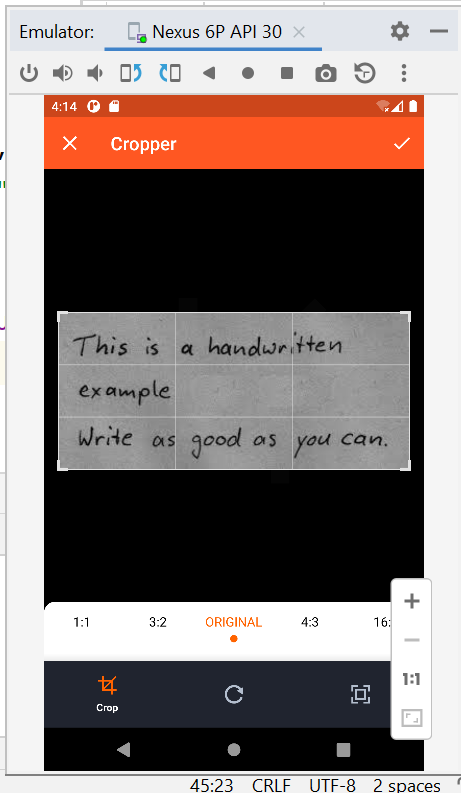 Emulator: Nexus 6P API 30
4:14
Cropper
This is a handwritten
example
Write as good as you can.
1:1 3:2 ORIGINAL 4:3 16:
1:1
Crop
45:23 CRLF UTF-8 2 spaces